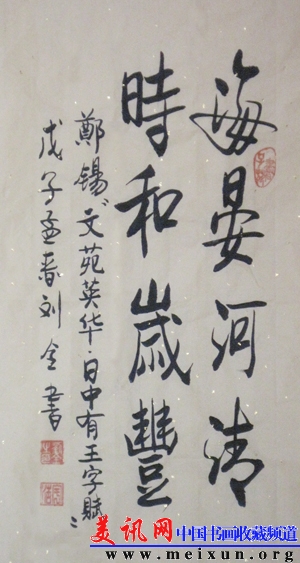 海晏河清
時和歲豐
鄭锡《文苑英华·日中有王字賦》
戊子孟春刘仝書
美讯网 中国书画收藏频道
www.meixun.org